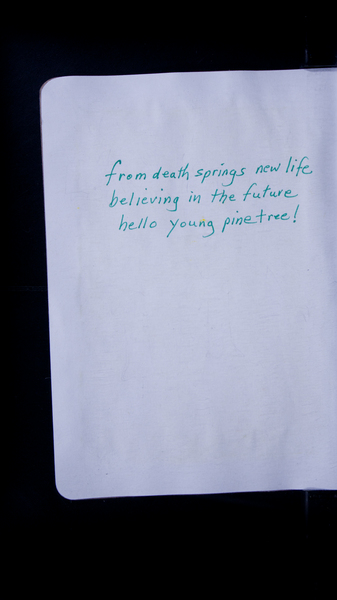 from death springs new life
believing in the future
hello young pine tree!